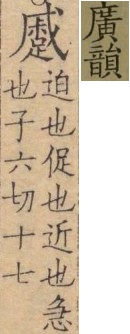 廣韻
慼
迫也促也近也急
也子六切十七